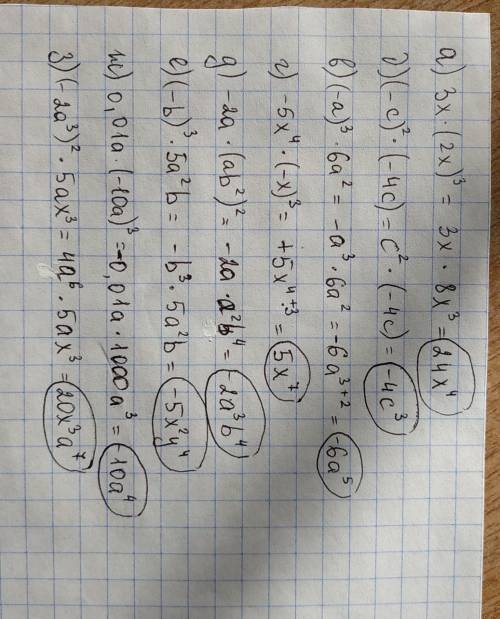 а) 3x · (2x)³ = 3x · 8x³ = 24x⁴
б) (-c)² · (-4c) = c² · (-4c) = -4c³
в) (-a)³ · 6a² = -a³ · 6a² = -6a³⁺² = -6a⁵
г) -5x⁴ · (-x)³ = +5x⁴⁺³ = 5x⁷
д) -2a · (ab²)² = -2a · a²b⁴ = -2a³b⁴
е) (-b)³ · 5a²b = -b³ · 5a²b = -5x²y⁴
ж) 0,01a · (-10a)³ = -0,01a · 1000a³ = -10a⁴
з) (-2a³)² · 5ax³ = 4a⁶ · 5ax³ = 20x³a⁷